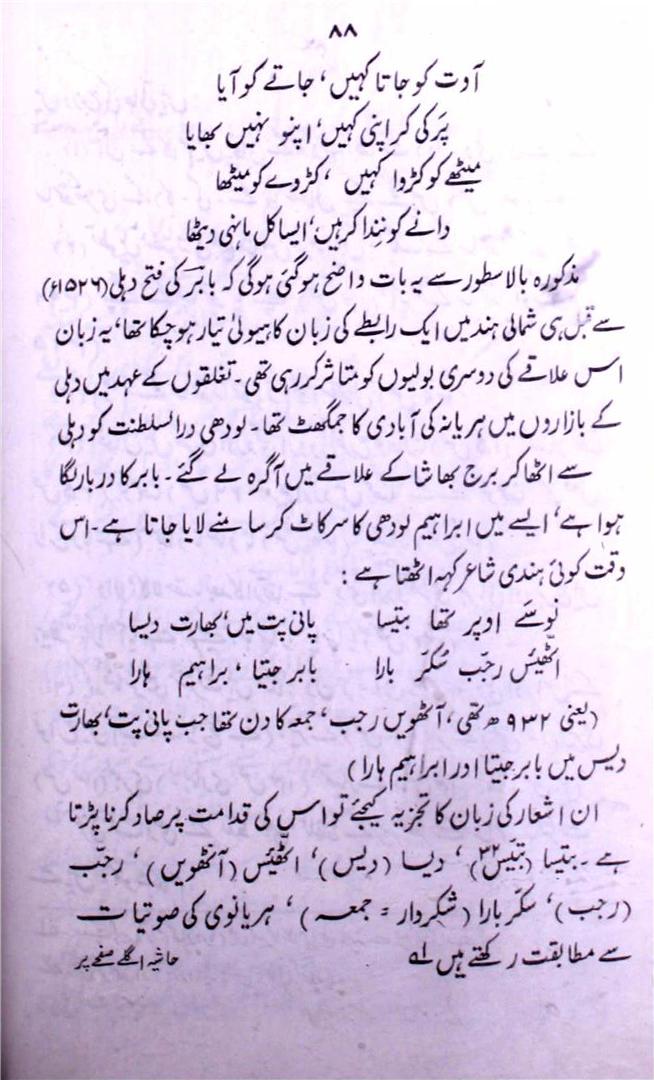 ۸۸
آوت کو جاتا کہیں، جاتے کو آیا
پَر کی کر اپنی کہیں، اپنو نہیں بھایا
میٹھے کو کڑوا کہیں ، کڑوے کو میٹھا
دانے کو نِندا کرہیں، ایسا کل مانہی دیٹھا
مذکورہ بالا سطور سے یہ بات واضح ہوگئی ہوگی کہ بابر کی فتح دہلی (۱۵۲۶ء)
سے قبل ہی شمالی ہند میں ایک رابطے کی زبان کا ہیولیٰ تیار ہوچکا تھا، یہ زبان
اس علاقے کی دوسری بولیوں کو متاثر کر رہی تھی۔ تغلقوں کے عہد میں دہلی
کے بازاروں میں ہریانہ کی آبادی کا جمگھٹ تھا۔ لودھی درالسلطنت کو دہلی
سے اٹھا کر برج بھاشا کے علاقے میں آگرہ لے گئے۔ بابر کا دربار لگا
ہوا ہے، ایسے میں ابراہیم لودھی کا سر کاٹ کر سامنے لایا جاتا ہے۔ اس
وقت کوئی ہندی شاعر کہہ اٹھتا ہے :
نوسَے اوپر تھا بتیسا پانی پت میں، بھارت دیسا
اٹھیَس رجّب سُکّر بارا بابر جیتا ، براہیم ہارا
(یعنی ۹۳۲ ھ تھی، آٹھویں رجب، جمعہ کا دن تھا جب پانی پت، بھارت
دیس میں بابر جیتا اور ابراہیم ہارا)
ان اشعار کی زبان کا تجزیہ کیجئے تو اس کی قدامت پر صاد کرنا پڑتا
ہے۔ بتیسا (بتیس ۳۲)، دیسا (دیس)، اٹھیَس (آٹھویں)، رجّب
(رجب)، سکّر بارا (شکردار = جمعہ)، ہریانوی کی صوتیات
سے مطابقت رکھتے ہیں ۱ے حاشیہ اگلے صفحے پر